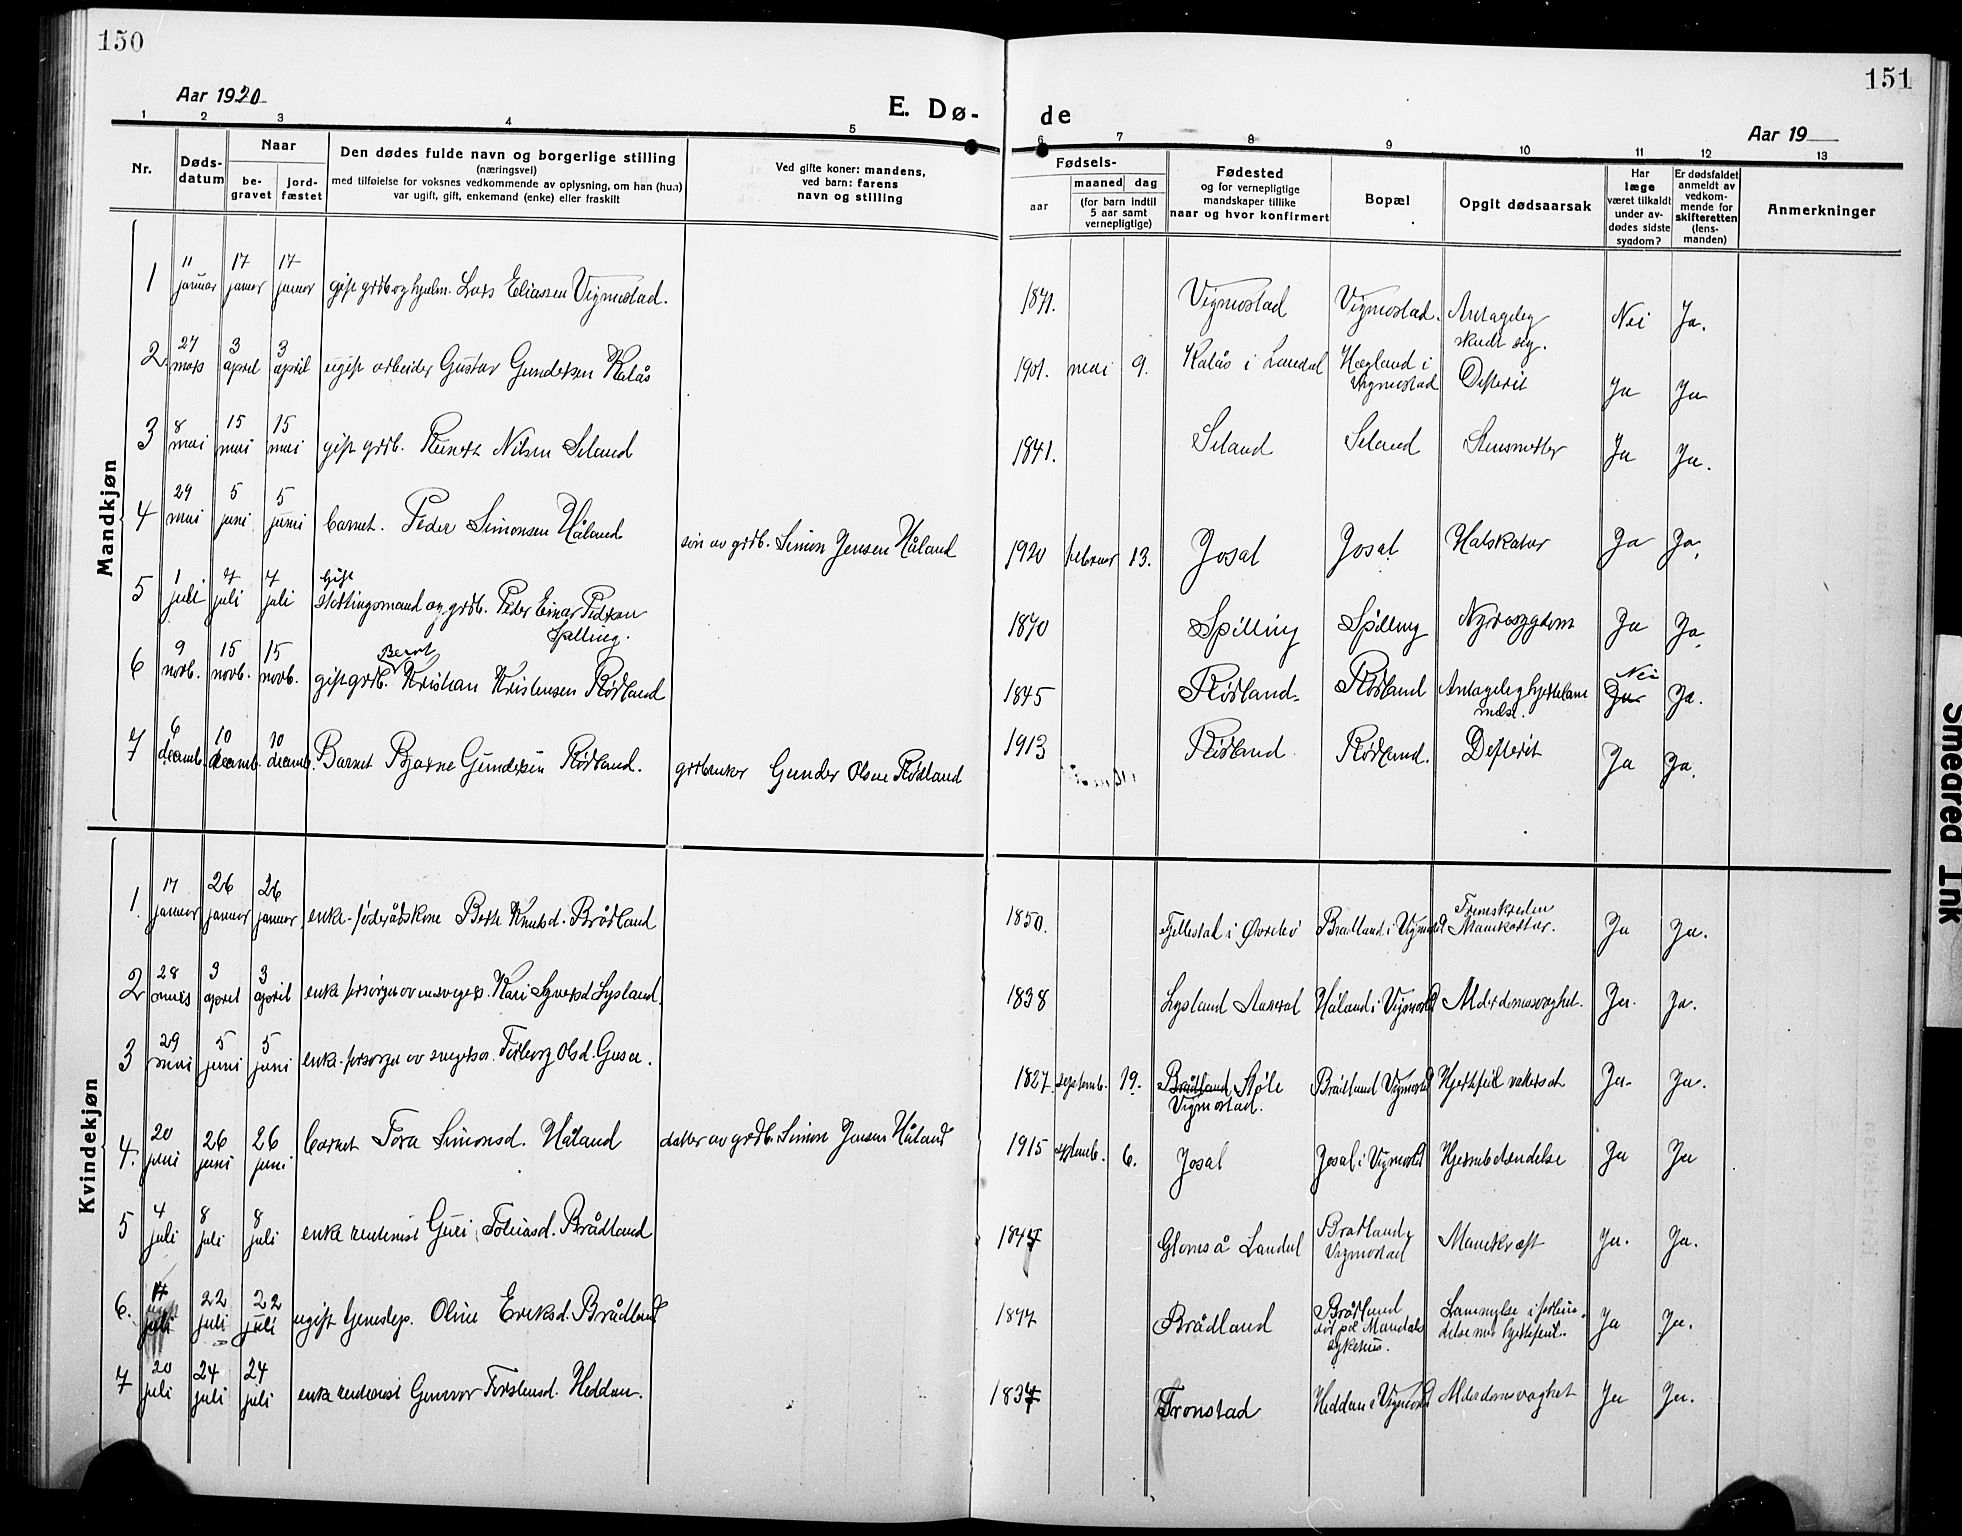 150
151
Aar 1920
E. Dø-
de
Aar 19
1 2 3 4 5 6 7 8 9 10 11 12 13
Nr.
Døds-
datum
Naar
be-
gravet
jord-
fæstet
Den dødes fulde navn og borgerlige stilling
(næringsvei)
med tilføielse for voksnes vedkommende av oplysning, om han (hun)
var ugift, gift, enkemand (enke) eller fraskilt
Ved gifte koner: mandens,
ved barn: farens
navn og stilling
Fødsels-
aar
maaned dag
(for barn indtil
5 aar samt
vernepligtige)
Fødested
og for vernepligtige
mandskaper tillike
naar og hvor konfirmert
Bopæl
Opgit dødsaarsak
Har
læge
været tilkaldt
under av-
dødes sidste
sygdom?
Er dødsfaldet
anmeldt av
vedkom-
mende for
skifteretten
(lens-
manden)
Anmerkninger
Mandkjøn
1 11 januar 17 januar 17 januar gift grdb og hjulm. Lars Eliassen Vigmostad. 1871. Vigmostad Vigmostad. Antagelig Nei Ja.
skudt sig.
2. 27 mars 3 april 3 april ugift arbeider Gustav Gundersen Kalås 1901. mai 9. Kalås i Laudal Hægland i Vigmostad Difterit Ja Ja
3 8 mai 15 mai 15 mai gift grdb. Reinert Nilsen Seland 1841. Seland Seland Ja Ja.
4 29 mai 5 juni 5 juni barnet. Peder Simonsen Håland søn av grdb. Simon Jensen Håland 1920 februar 13. Josal Josal Halskatar Ja Ja.
5 1 juli 7 juli 7 juli gift
stortingsmand og grdb. Peder Einar Pedersen
Spilling. 1870 Spilling Spilling Nyresygdom Ja Ja.
6 9 novb. 15 novb. 15 novb. gift grdb. Bernt Kristian Kristensen Rødland 1845 Rødland Rødland Antagelig hjertelam- Nei Ja Ja.
melse.
7 6 decemb. 10 decemb. 10 decemb. Barnet Bjarne Gundersen Rødland. grdbruker Gunder Olsen Rødland 1913 Rødland. Rødland. Difterit Ja Ja.
Kvindekjøn
1. 17 januar 26 januar 26 januar enke føderådskone Berte Knutsd. Brådland 1850. Fjellestad i Øvrebø Brådland i Vigmostad Fremskreden Ja Ja.
Mavekatar.
2 28 mars 3 april 3 april enke forsørget av Kari Lysland. 1838 Lysland Aaseral Håland i Vigmostad Alderdomssvaghet. Ja. Ja.
3 29 mai 5 juni 5 juni enke forsørget av Torborg Olsd. 1827. septemb. 19. Brådland Støle Brådland Vigmostad Hjertefeil vattersot Ja. Ja.
Vigmostad.
4. 20 juni 26 juni 26 juni barnet Tora Simonsd. Håland datter av grdb. Simon Jensen Håland 1915 septemb. 6. Josal Josal i Vigmostad Hjernebetændelse Ja Ja
5 4 juli 8 juli 8 juli enke rentenist Guri Tobiasd. Brådland 1847 Glomså Laudal Brådland Vigmostad Mavekræft Ja. Ja.
6. 17 juli 22 juli 22 juli ugift tjenestep. Oline Eriksd. Brådland 1877 Brådland Brådland Lammelse i forbin- Ja Ja.
død på Mandals delse med hjertefeil.
sykehus.
7 20 juli 24 juli 24 juli enke rentenist Gunvor Torstensd. Heddan. 1837 Tronstad Heddan i Vigmostad Alderdomssvaghet Ja Ja.
Smeared Ink